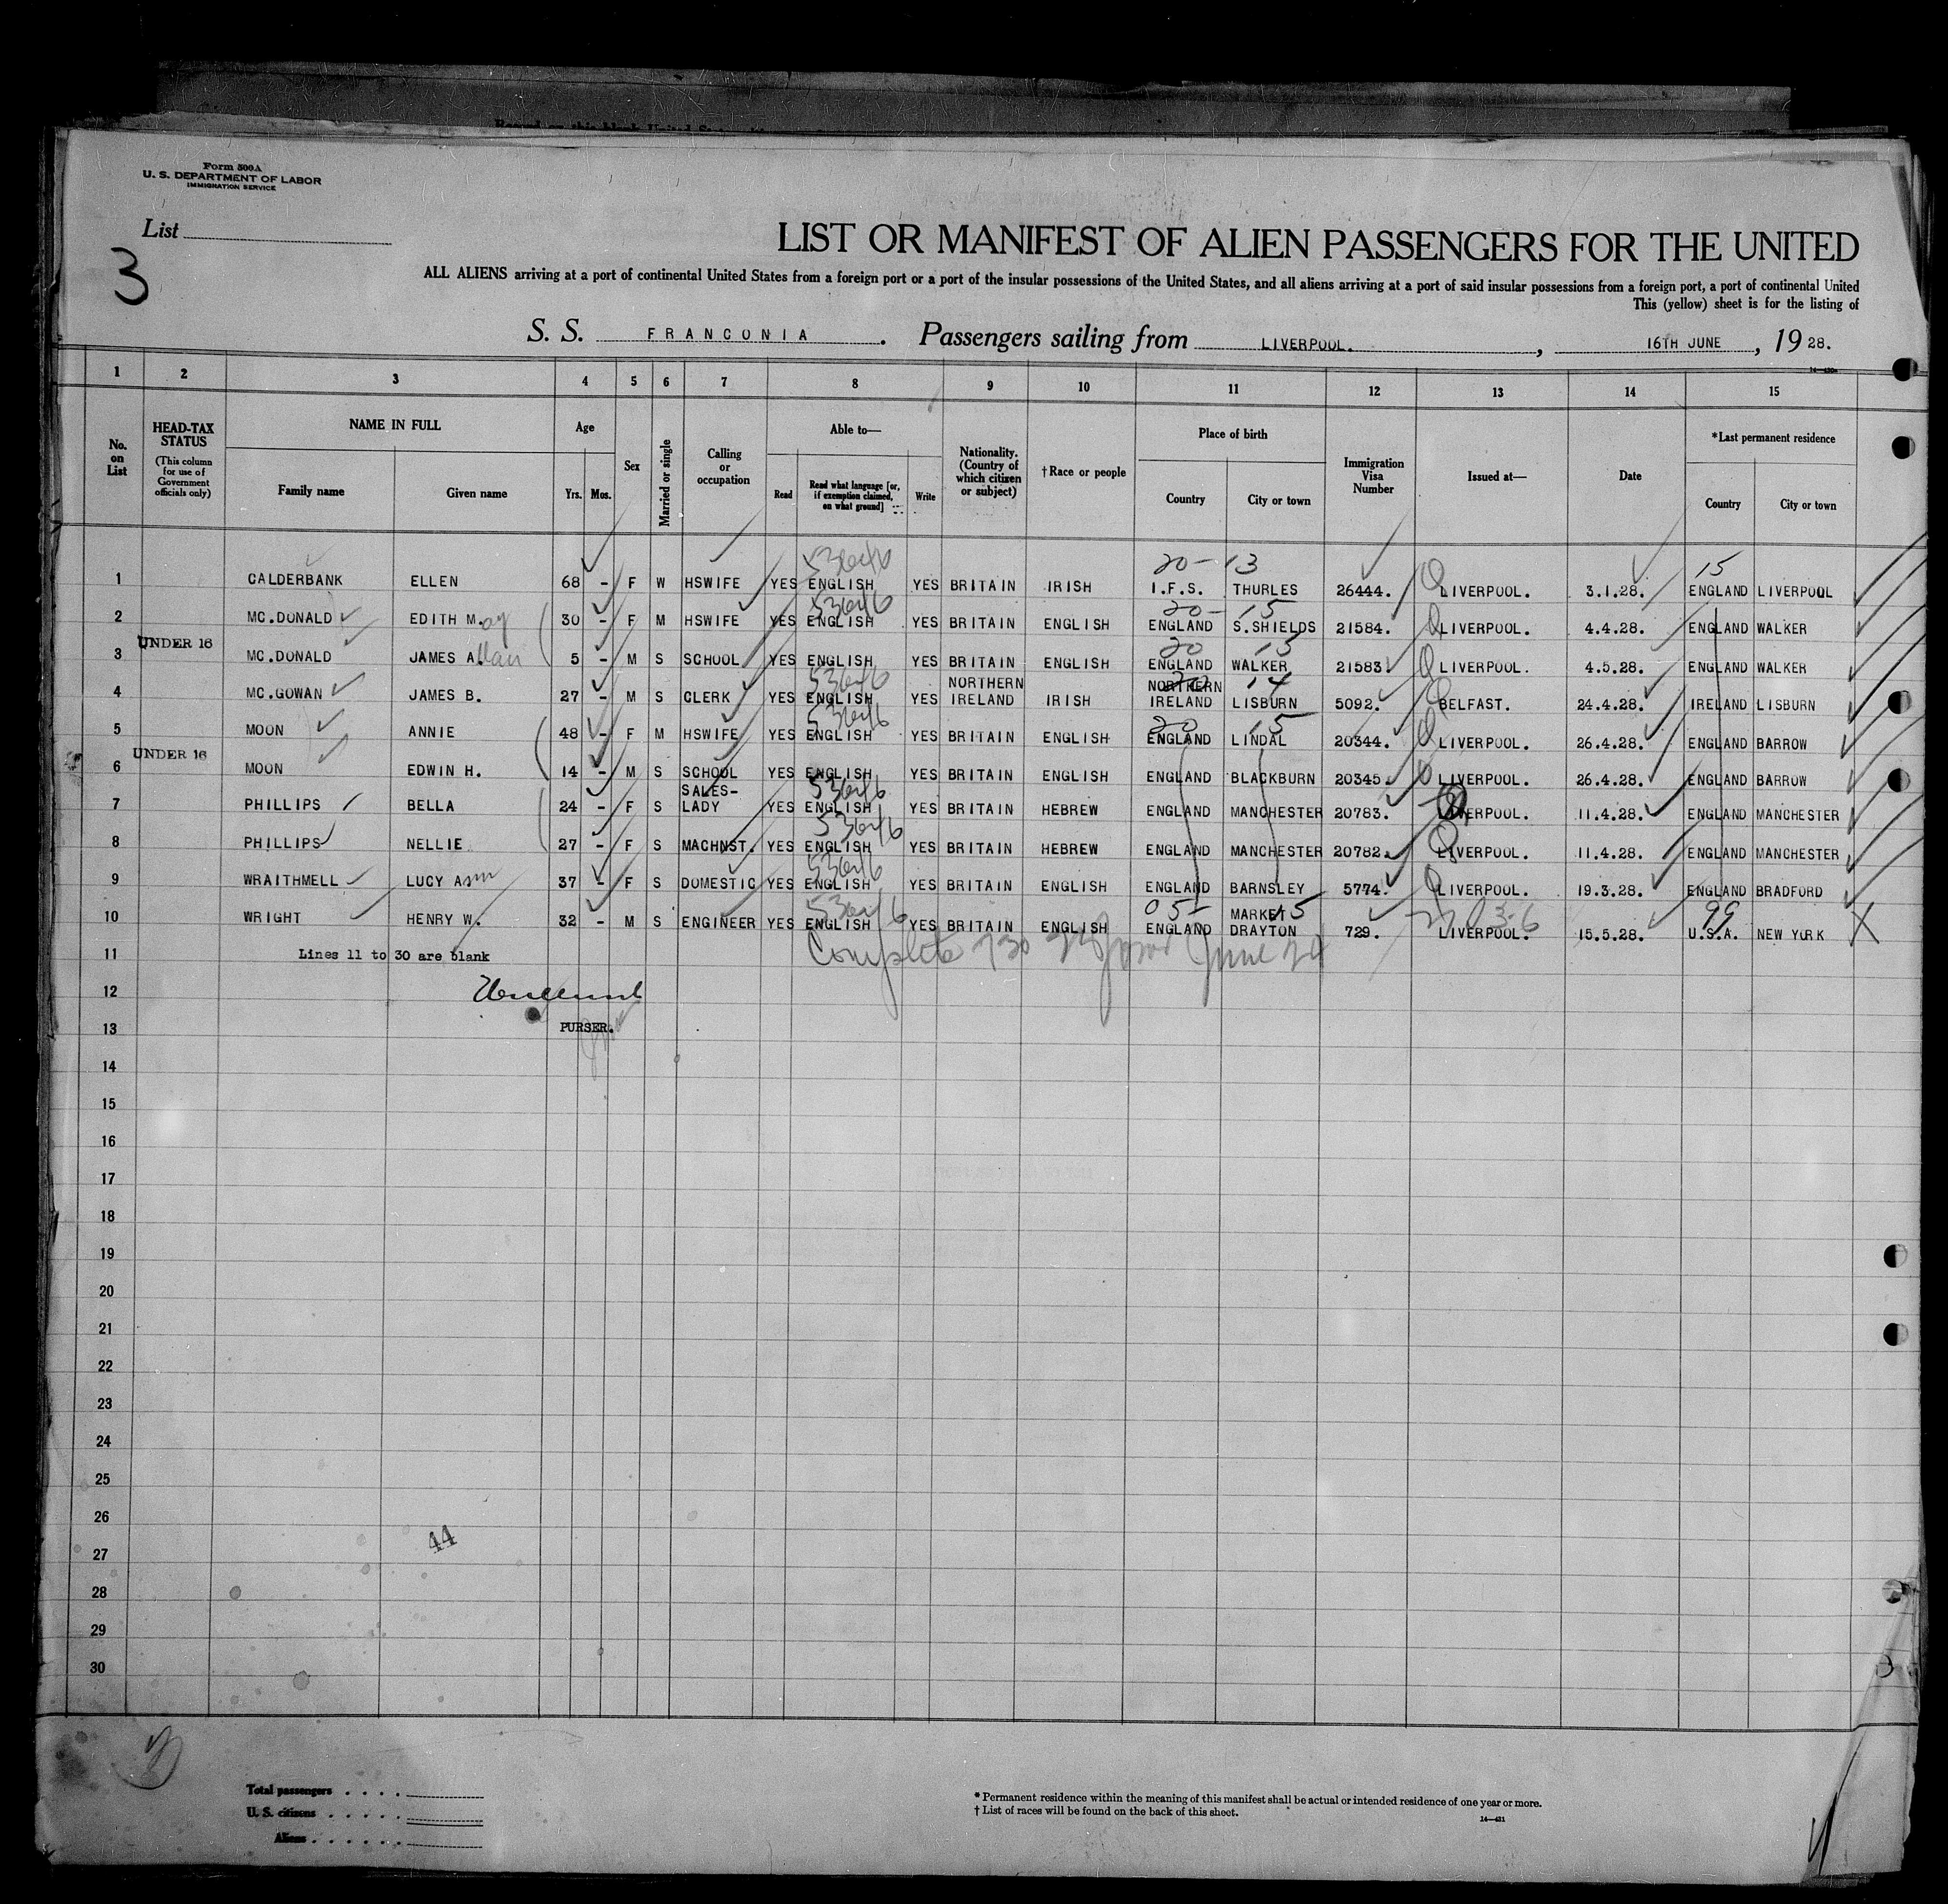 Form 500A
U. S. DEPARTMENT OF LABOR
IMMIGRATION SERVICE
List
3
LIST OR MANIFEST OF ALIEN PASSENGERS FOR THE UNITED
ALL ALIENS arriving at a port of continental United States from a foreign port or a port of the insular possessions of the United States, and all aliens arriving at a port of said insular possessions from a foreign port, a port of continental United
This (yellow) sheet is for the listing of
S. S. FRANCONIA . Passengers sailing from LIVERPOOL. , 16TH JUNE , 19 28.
1 2 3 4 5 6 7 8 9 10 11 12 13 14 15
No. on List
HEAD-TAX STATUS (This column for use of Government officials only)
NAME IN FULL
Family name Given name
Age
Yrs. Mos.
Sex
Married or single
Calling or occupation
Able to—
Read Read what language [or, if exemption claimed, on what ground] Write
Nationality. (Country of which citizen or subject)
† Race or people
Place of birth
Country City or town
Immigration Visa Number
Issued at—
Date
*Last permanent residence
Country City or town
20-13 15
1 CALDERBANK ELLEN 68 - F W HSWIFE YES ENGLISH YES BRITAIN IRISH I.F.S. THURLES 26444. LIVERPOOL. 3.1.28. ENGLAND LIVERPOOL
53646 20- 15
2 MC.DONALD EDITH May 30 - F M HSWIFE YES ENGLISH YES BRITAIN ENGLISH ENGLAND S.SHIELDS 21584. LIVERPOOL. 4.4.28. ENGLAND WALKER
UNDER 16 20 15
3 MC.DONALD JAMES Allan 5 - M S SCHOOL YES ENGLISH YES BRITAIN ENGLISH ENGLAND WALKER 21583 LIVERPOOL. 4.5.28. ENGLAND WALKER
53646 20 14
4 MC.GOWAN JAMES B. 27 - M S CLERK YES ENGLISH YES NORTHERN IRELAND IRISH NORTHERN IRELAND LISBURN 5092. BELFAST. 24.4.28. IRELAND LISBURN
53646 20 15
5 MOON ANNIE 48 - F M HSWIFE YES ENGLISH YES BRITAIN ENGLISH ENGLAND LINDAL 20344. LIVERPOOL. 26.4.28. ENGLAND BARROW
UNDER 16
6 MOON EDWIN H. 14 - M S SCHOOL YES ENGLISH YES BRITAIN ENGLISH ENGLAND BLACKBURN 20345. LIVERPOOL. 26.4.28. ENGLAND BARROW
53646
7 PHILLIPS BELLA 24 - F S SALES-LADY YES ENGLISH YES BRITAIN HEBREW ENGLAND MANCHESTER 20783. LIVERPOOL. 11.4.28. ENGLAND MANCHESTER
53646
8 PHILLIPS NELLIE 27 - F S MACHNST. YES ENGLISH YES BRITAIN HEBREW ENGLAND MANCHESTER 20782. LIVERPOOL. 11.4.28. ENGLAND MANCHESTER
53646
9 WRAITHMELL LUCY Ann 37 - F S DOMESTIC YES ENGLISH YES BRITAIN ENGLISH ENGLAND BARNSLEY 5774. LIVERPOOL. 19.3.28. ENGLAND BRADFORD
53646 05 15 99
10 WRIGHT HENRY W. 32 - M S ENGINEER YES ENGLISH YES BRITAIN ENGLISH ENGLAND MARKET DRAYTON 729. LIVERPOOL. 15.5.28. U.S.A. NEW YORK X
11 Lines 11 to 30 are blank Complete June 24
12
13 PURSER.
14
15
16
17
18
19
20
21
22
23
24
25
26
27
28
29
30
44
Total passengers . . . .
U. S. citizens . . . . .
Aliens . . . . . .
* Permanent residence within the meaning of this manifest shall be actual or intended residence of one year or more.
† List of races will be found on the back of this sheet.
14—431